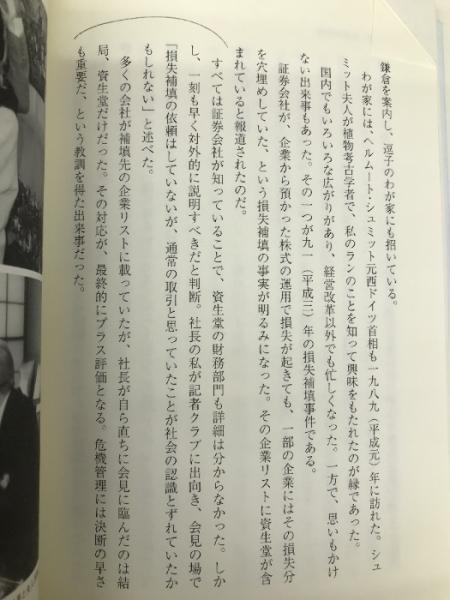 鎌倉を案内し、逗子のわが家にも招いている。
わが家には、ヘルムート・シュミット元西ドイツ首相も一九八九（平成元）年に訪れた。シュ
ミット夫人が植物考古学者で、私のランのことを知って興味をもたれたのが縁であった。
国内でもいろいろな広がりがあり、経営改革以外でも忙しくなった。一方で、思いもかけ
ない出来事もあった。その一つが九一（平成三）年の損失補填事件である。
証券会社が、企業から預かった株式の運用で損失が起きても、一部の企業にはその損失分
を穴埋めしていた、という損失補填の事実が明るみになった。その企業リストに資生堂が含
まれていると報道されたのだ。
すべては証券会社が知っていることで、資生堂の財務部門も詳細は分からなかった。しか
し、一刻も早く対外的に説明すべきだと判断。社長の私が記者クラブに出向き、会見の場で
「損失補填の依頼はしていないが、通常の取引と思っていたことが社会の認識とずれていたか
もしれない」と述べた。
多くの会社が補填先の企業リストに載っていたが、社長が自ら直ちに会見に臨んだのは結
局、資生堂だけだった。その対応が、最終的にプラス評価となる。危機管理には決断の早さ
も重要だ、という教訓を得た出来事だった。